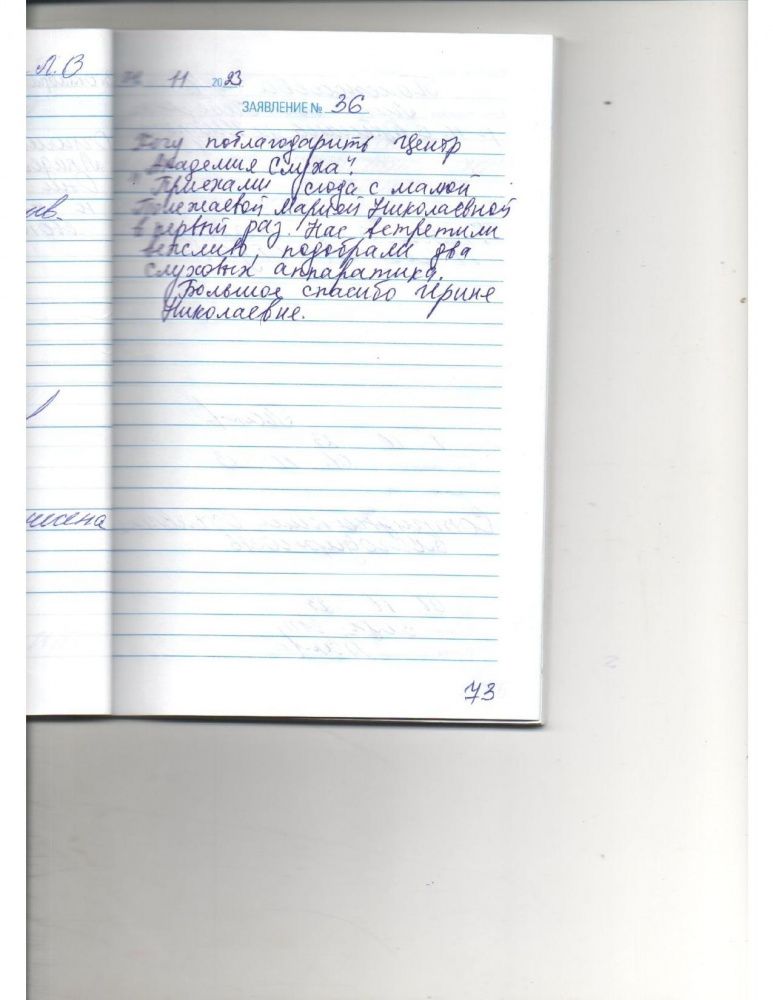 Л.О
11 2023
ЗАЯВЛЕНИЕ № 36
Хочу поблагодарить Центр
"Академия Слуха".
Приехали сюда с мамой
Мариной Николаевной
в первый раз. Нас встретили
вежливо, подобрали два
слуховых аппаратика.
Большое спасибо Ирине
Николаевне.
73